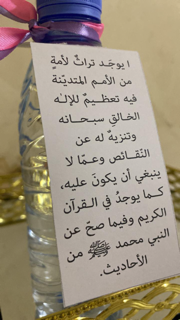 لا يوجد تراثٌ لأمةٍ
من الأمم المتديّنة
فيه تعظيمٌ للإلٰه
الخالق سبحانه
وتنزيهٌ له عن
النّقائص وعمّا لا
ينبغي أن يكونَ عليه،
كما يوجدُ في القرآن
الكريم وفيما صحّ عن
النبي محمد ﷺ من
الأحاديث.